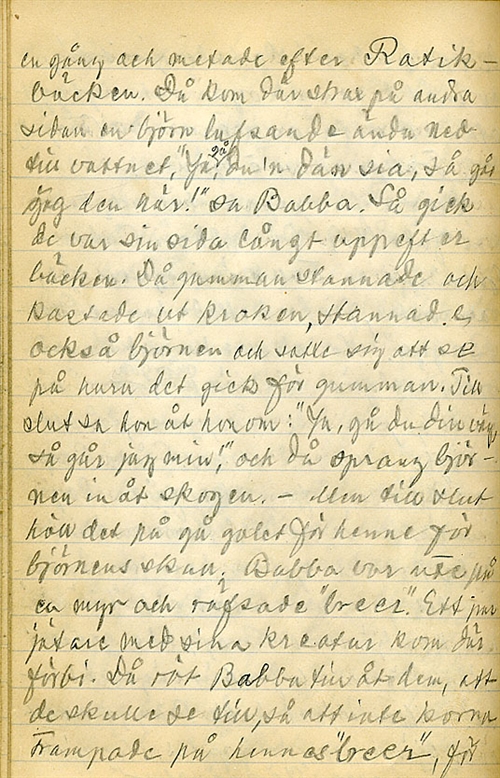 en gång och metade efter Ratik-
bäcken. Då kom där strax på andra
sidan en björn lufsande ända ned
till vattnet, "Ja, gå du 'n dän sia, så går
jög den här!" sa Babba. Så gick
de var sin sida långt uppefter
bäcken. Då gumman stannade och
kastade ut kroken, stannade
också björnen och satte sig att se
på huru det gick för gumman. Till
slut sa hon åt honom: "Ja, gå du din väg,
så går jag min!", och då sprang björ-
nen in åt skogen. – Men till slut
höll det på gå galet för henne för
björnens skull. Babba var ute på
en myr och räfsade "breer". Ett par
jätare med sina kreatur kom där
förbi. Då röt Babba till åt dem, att
de skulle se till, så att inte korna
trampade på hennes "breer", för